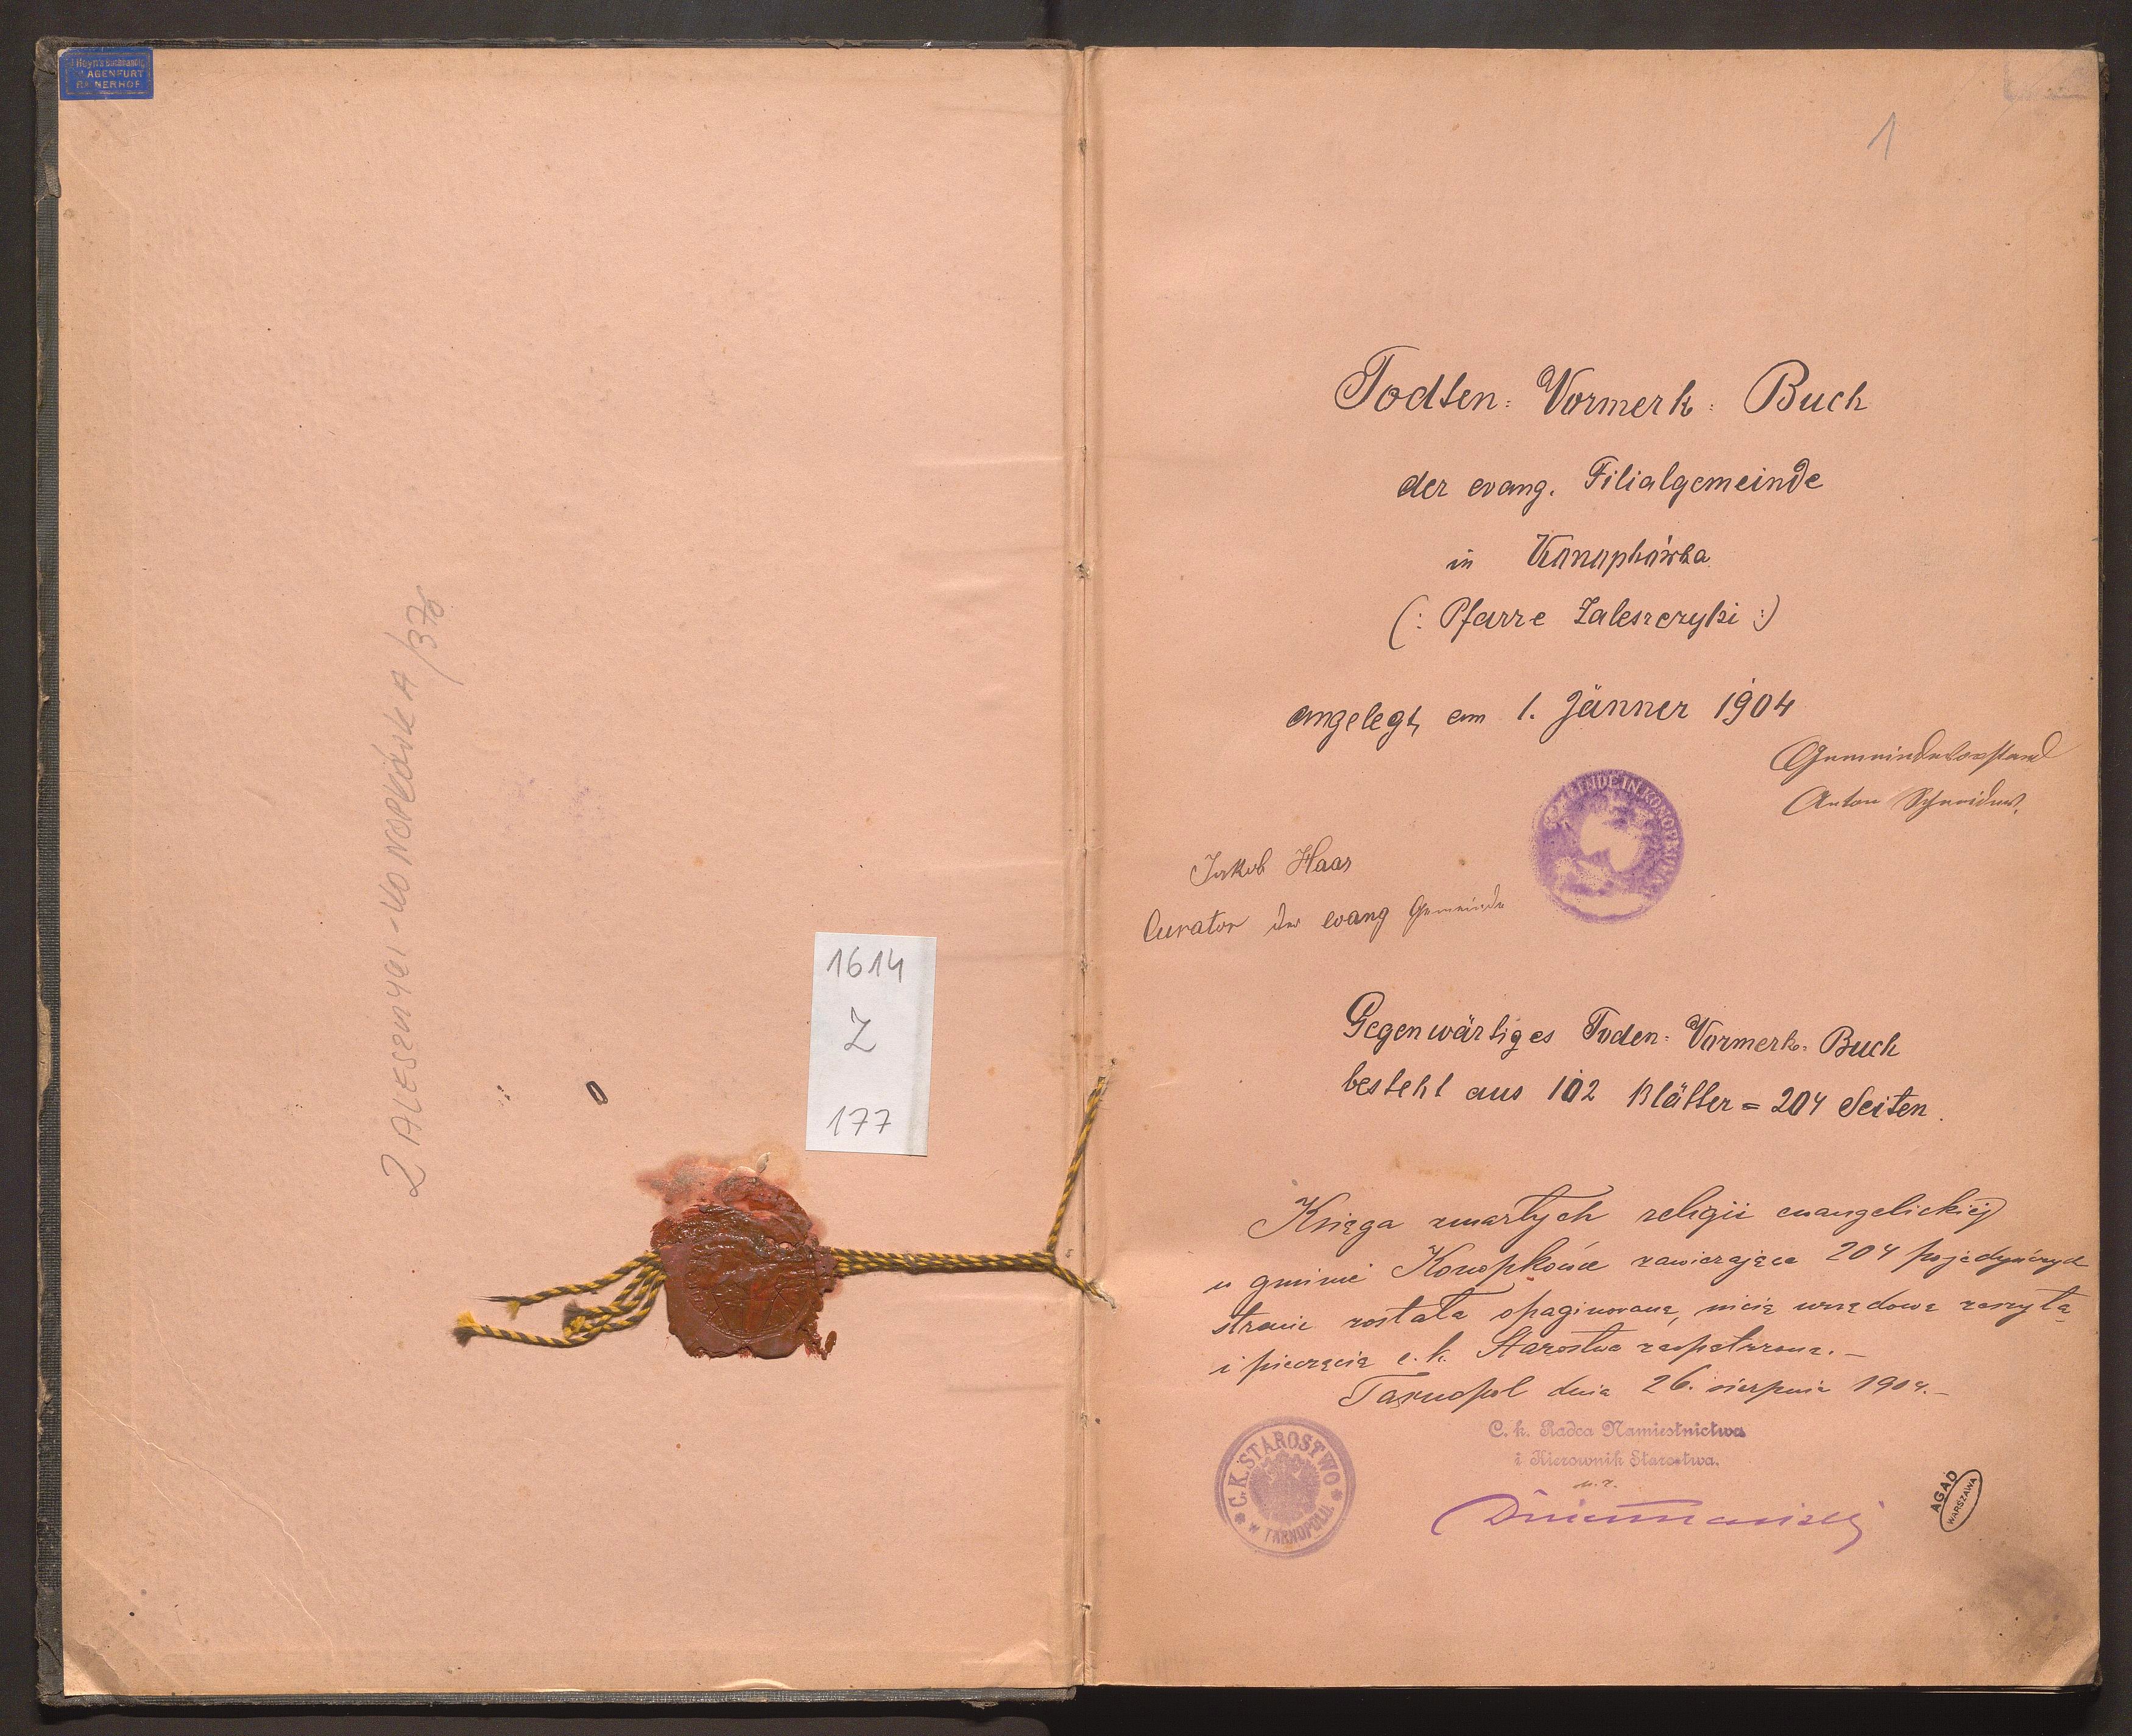 J Heyn's Buchhandlg
KLAGENFURT
RAINERHOF
ZALESZCZYKI - KONOPKÓWKA /370
1614
Z
177
1
Todten = Vormerk = Buch
der evang. Filialgemeinde
in Konopkówka
(: Pfarre Zaleszczyki :)
angelegt am 1. Jänner 1904
Gemeindevorstand
Anton Schneider.
GEMEINDE IN KONOPKÓWKA
Jakob Haas
Curator der evang Gemeinde
Gegenwärtiges Toden = Vormerk = Buch
besteht aus 102 Blätter = 204 Seiten.
Księga zmarłych religii ewangelickiej
w gminie Konopkówce zawierająca 204 pojedynczych
stronic została opaginowaną, nicią urzędową zeszytą
i pieczęcią c. k. Starostwa zaopatrzoną. —
Tarnopol dnia 26. sierpnia 1904. —
C. k. Radca Namiestnictwa
i Kierownik Starostwa.
C. K. STAROSTWO
W TARNOPOLU
AGAD
WARSZAWA